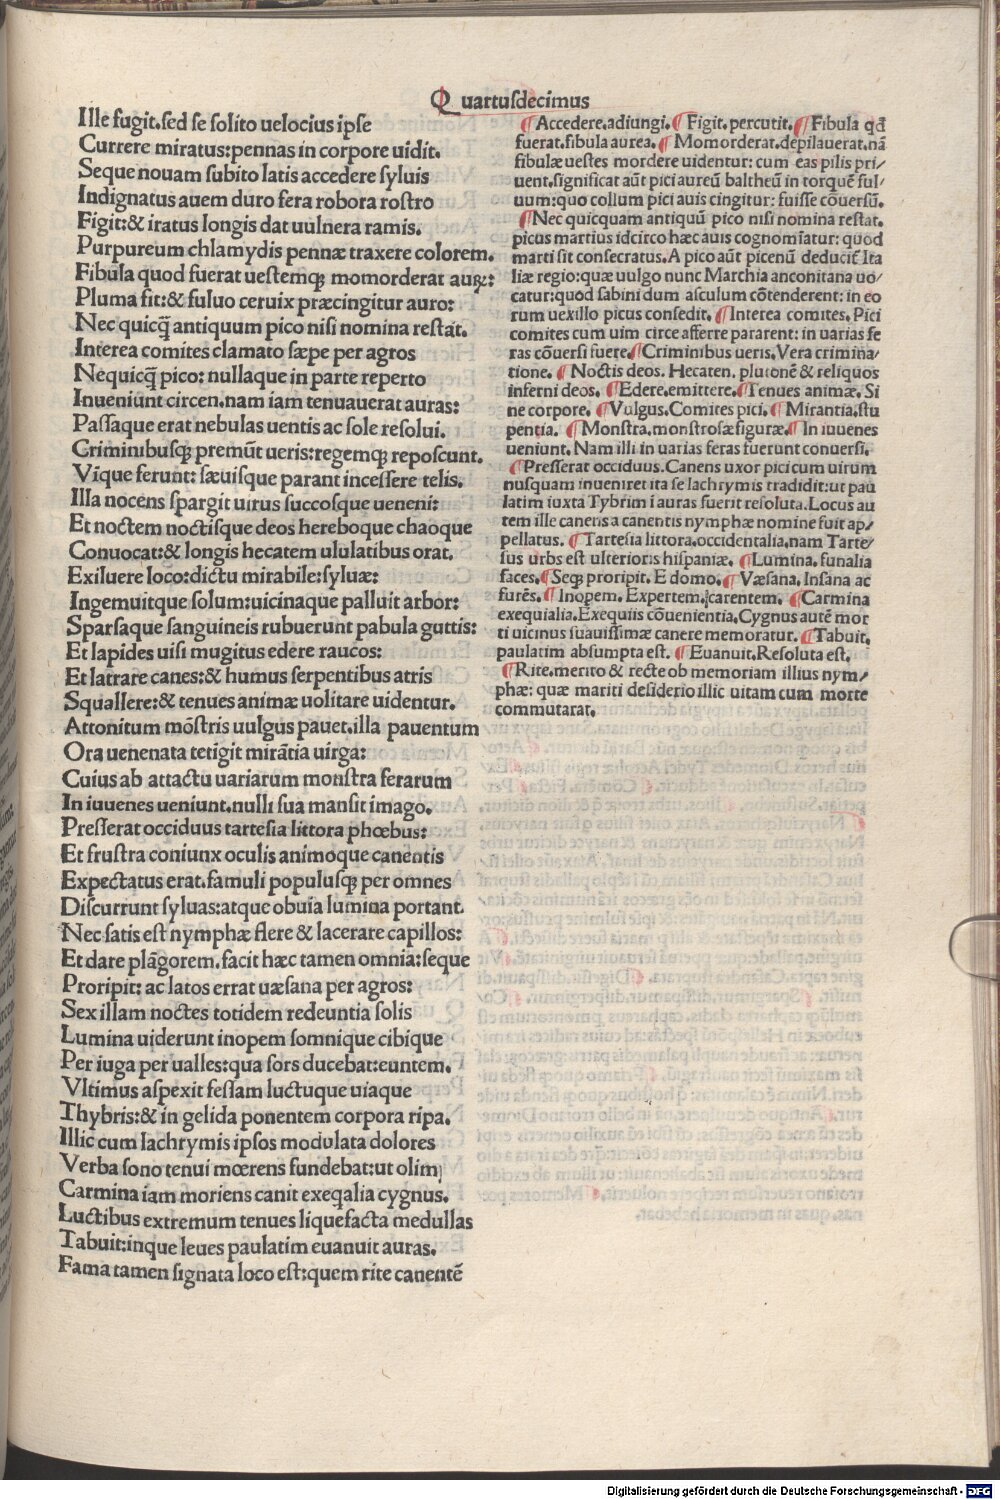 Quartusdecimus
Ille fugit.sed se solito uelocius ipse
Currere miratus:pennas in corpore uidit.
Seque nouam subito latis accedere syluis
Indignatus auem duro fera robora rostro
Figit:& iratus longis dat uulnera ramis.
Purpureum chlamydis pennæ traxere colorem.
Fibula quod fuerat uestemqꝫ momorderat auꝝ:
Pluma fit:& fuluo ceruix præcingitur auro:
Nec quicq̃ antiquum pico nisi nomina restat.
Interea comites clamato sæpe per agros
Nequicq̃ pico: nullaque in parte reperto
Inueniunt circen.nam iam tenuauerat auras:
Passaque erat nebulas uentis ac sole resolui.
Criminibusqꝫ premūt ueris:regemqꝫ reposcunt.
Vique ferunt: sæuisque parant incessere telis.
Illa nocens spargit uirus succosque ueneni:
Et noctem noctisque deos hereboque chaoque
Conuocat:& longis hecatem ululatibus orat.
Exiluere loco:dictu mirabile:syluæ:
Ingemuitque solum:uicinaque palluit arbor:
Sparsaque sanguineis rubuerunt pabula guttis:
Et lapides uisi mugitus edere raucos:
Et latrare canes:& humus serpentibus atris
Squallere:& tenues animæ uolitare uidentur.
Attonitum mōstris uulgus pauet.illa pauentum
Ora uenenata tetigit mirātia uirga:
Cuius ab attactu uariarum monstra ferarum
In iuuenes ueniunt.nulli sua mansit imago.
Presserat occiduus tartesia littora phœbus:
Et frustra coniunx oculis animoque canentis
Expectatus erat.famuli populusqꝫ per omnes
Discurrunt syluas:atque obuia lumina portant.
Nec satis est nymphæ flere & lacerare capillos:
Et dare plāgorem.facit hæc tamen omnia:seque
Proripit: ac latos errat uæsana per agros:
Sex illam noctes totidem redeuntia solis
Lumina uiderunt inopem somnique cibique
Per iuga per ualles:qua sors ducebat:euntem.
Vltimus aspexit fessam luctuque uiaque
Thybris:& in gelida ponentem corpora ripa.
Illic cum lachrymis ipsos modulata dolores
Verba sono tenui mœrens fundebat:ut olim
Carmina iam moriens canit exeq̄alia cygnus.
Luctibus extremum tenues liquefacta medullas
Tabuit:inque leues paulatim euanuit auras.
Fama tamen signata loco est:quem rite canentē
¶Accedere.adiungi.¶Figit.percutit.¶Fibula qđ
fuerat.fibula aurea.¶Momorderat.depilauerat.nā
fibulæ uestes mordere uidentur: cum eas pilis pri/
uent.significat aūt pici aureū baltheū in torquē ful/
uum:quo collum pici auis cingitur: fuisse cōuersū.
¶Nec quicquam antiquū pico nisi nomina restat.
picus martius idcirco hæc auis cognomīatur: quod
marti sit consecratus.A pico aūt picenū deducit̄ Ita
liæ regio:quæ uulgo nunc Marchia anconitana uo/
catur:quod sabini dum asculum cōtenderent: in eo
rum uexillo picus consedit.¶Interea comites.Pici
comites cum uim circe afferre pararent: in uarias fe
ras cōuersi fuere.¶Criminibus ueris.Vera crimina/
tione. ¶Noctis deos. Hecaten. plutonē & reliquos
inferni deos. ¶Edere.emittere.¶Tenues animæ. Si
ne corpore. ¶Vulgus.Comites pici. ¶Mirantia.stu
pentia. ¶Monstra.monstrosæ figuræ.¶In iuuenes
ueniunt. Nam illi in uarias feras fuerunt conuersi.
¶Presserat occiduus.Canens uxor pici cum uirum
nusquam inueniret ita se lachrymis tradidit:ut pau
latim iuxta Tybrim ī auras fuerit resoluta.Locus au
tem ille canens a canentis nymphæ nomine fuit ap/
pellatus. ¶Tartesia littora.occidentalia.nam Tarte/
sus urbs est ulterioris hispaniæ. ¶Lumina. funalia
faces.¶Seqꝫ proripit. E domo.¶Væsana. Insana ac
furēs.¶Inopem. Expertem.carentem. ¶Carmina
exequialia.Exequiis cōuenientia.Cygnus autē mor
ti uicinus suauissimæ canere memoratur. ¶Tabuit.
paulatim absumpta est. ¶Euanuit.Resoluta est.
¶Rite.merito & recte ob memoriam illius nym/
phæ: quæ mariti desiderio illic uitam cum morte
commutarat.
Digitalisierung gefördert durch die Deutsche Forschungsgemeinschaft - DFG